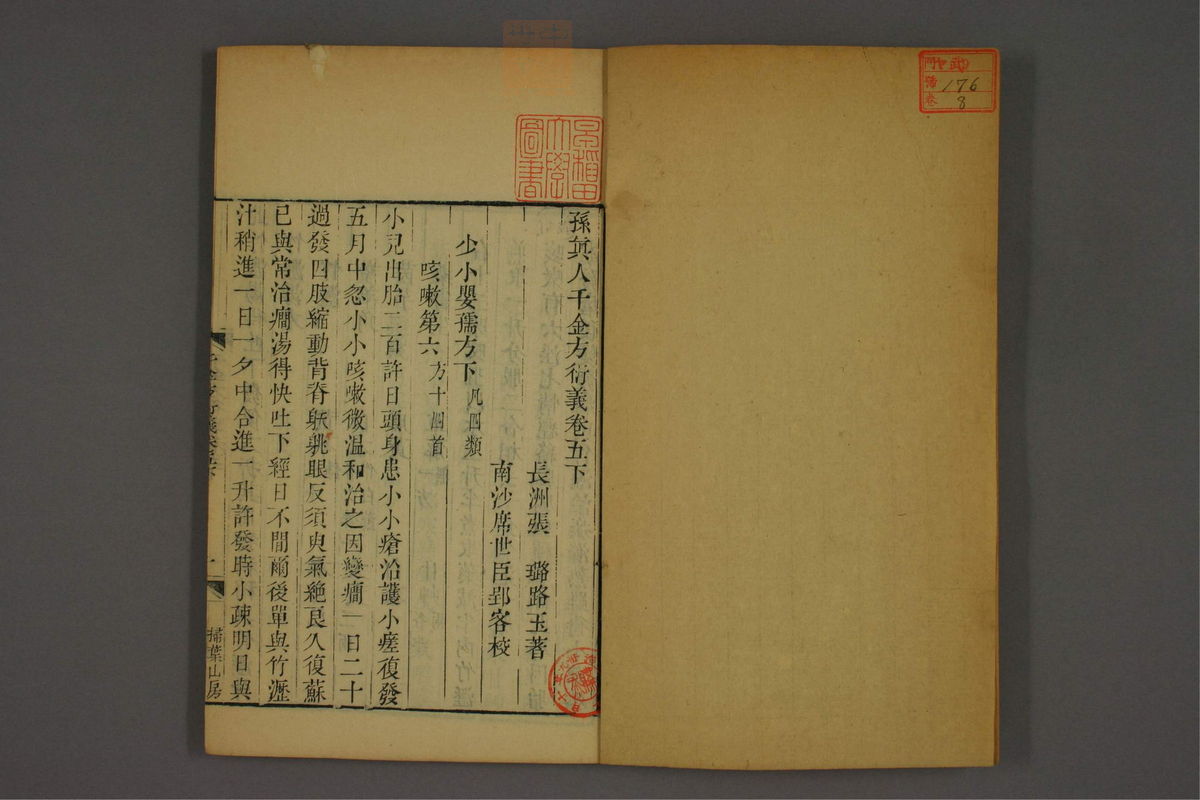 孫真人千金方衍義卷五下
長洲張　璐路玉著
南沙席世臣郢客校
少小嬰孺方下凡四類
咳嗽第六方十四首
小兒出胎二百許日頭身患小小瘡治護小瘥復發
五月中忽小小咳嗽微温和治之因變癇一日二十
過發四肢縮動背脊眼反須臾氣絶良久復蘇
已與常治癇湯得快吐下經日不間爾後單與竹瀝
汁稍進一日一夕中合進一升許發時小疎明日與
掃葉山房
早稻田
大學
圖書
門
號 176
卷 8